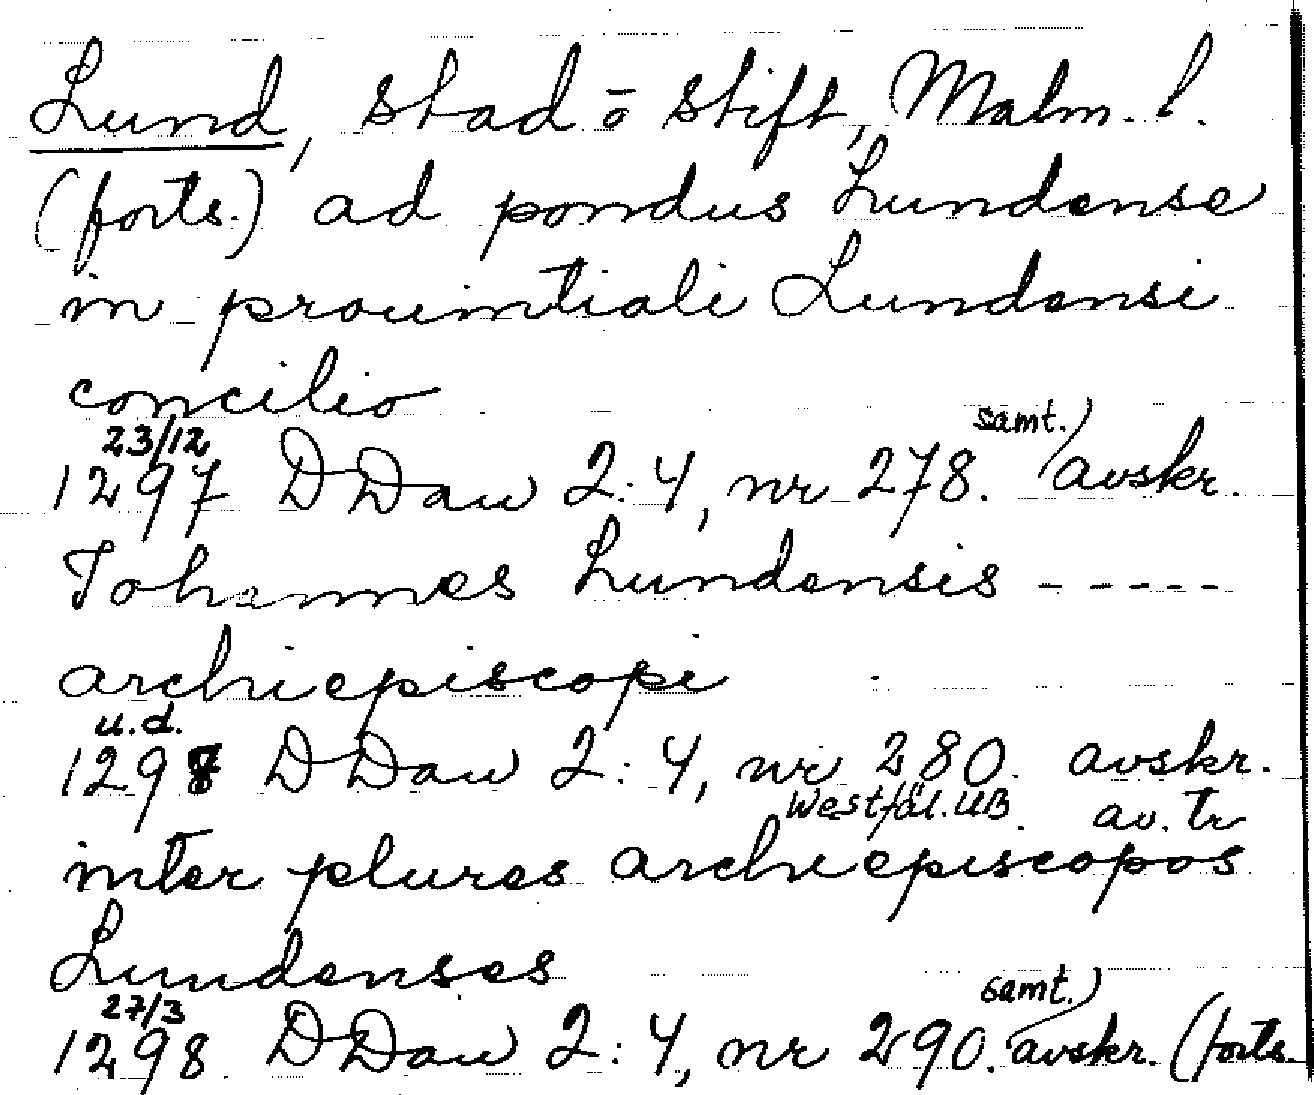 Lund, stad o stift, Malm. l.
(forts.) ad pondus Lundense
in prouintiali Lundensi
concilio
23/12 samt.)
1297 DDan 2:4, nr 278. avskr.
Iohannes Lundensis -----
archiepiscopi
u.d.
1297 DDan 2:4, nr 280. avskr.
Westfäl. UB. av. tr
inter plures archiepiscopos
Lundenses
27/3 samt.)
1298 DDan 2:4, nr 290. avskr. (forts.